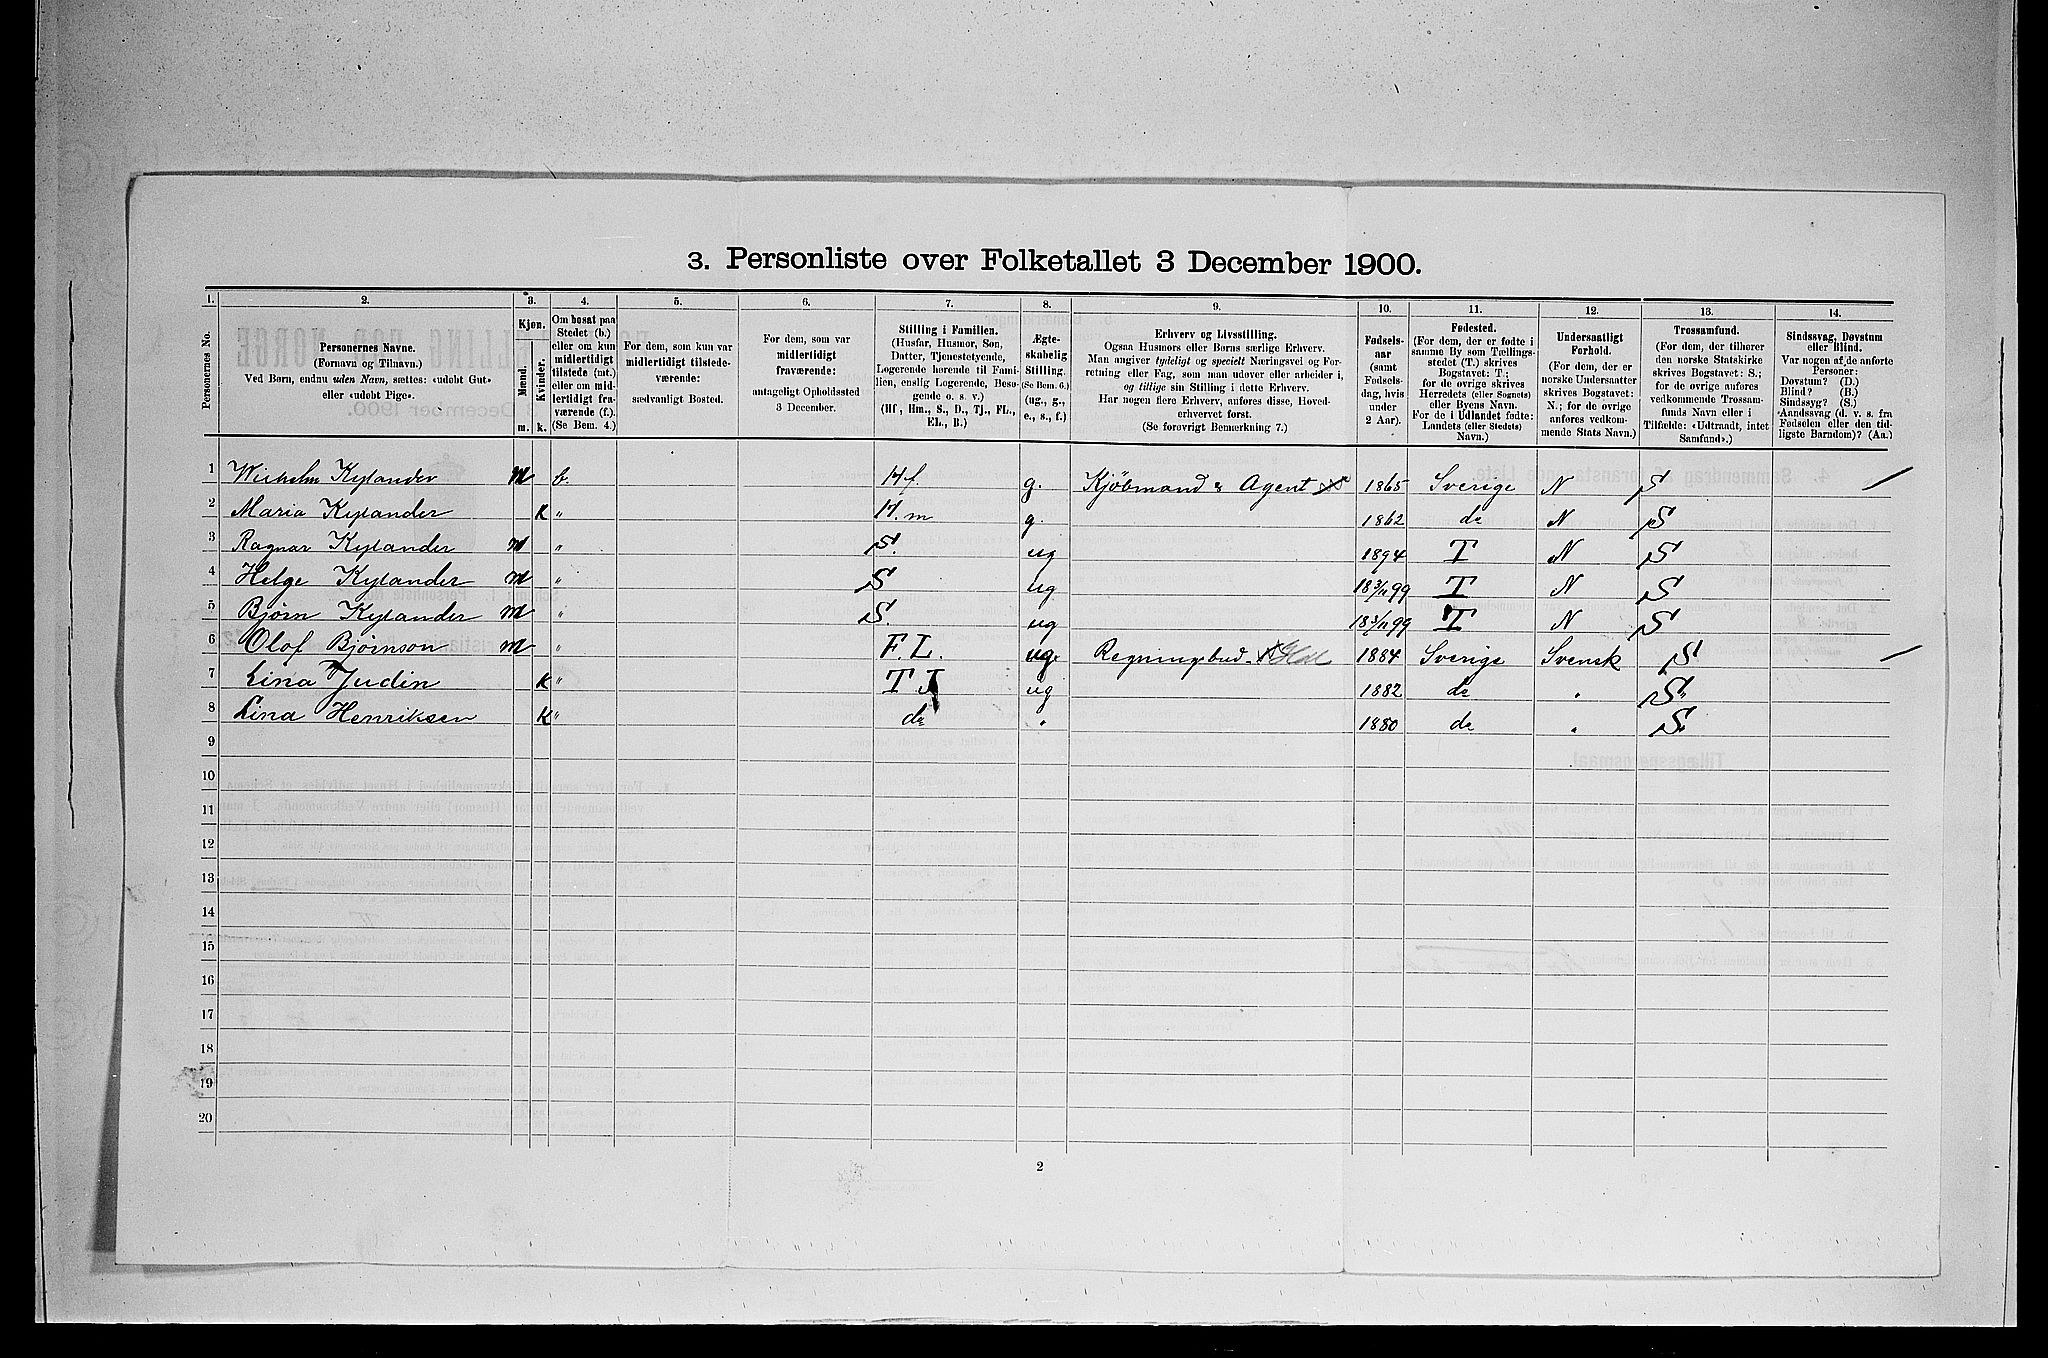 3. Personliste over Folketallet 3 December 1900.
1. 2. 3. 4. 5. 6. 7. 8. 9. 10. 11. 12. 13. 14.
Personernes No.
Personernes Navne.
(Fornavn og Tilnavn.)
Ved Børn, endnu uden Navn, sættes: «udøbt Gut»
eller «udøbt Pige».
Kjøn.
Mænd.
Kvinder.
m. k.
Om bosat paa
Stedet (b.)
eller om kun
midlertidigt
tilstede (mt.)
eller om mid-
lertidigt fra-
værende (f.).
(Se Bem. 4.)
For dem, som kun var
midlertidigt tilstede-
værende:
sædvanligt Bosted.
For dem, som var
midlertidigt
fraværende:
antageligt Opholdssted
3 December.
Stilling i Familien.
(Husfar, Husmor, Søn,
Datter, Tjenestetyende,
Logerende hørende til Fami-
lien, enslig Logerende, Besø-
gende o. s. v.)
(Hf, Hm., S., D., Tj., FL.,
EL., B.)
Ægte-
skabelig
Stilling.
(Se Bem. 6.)
(ug., g.,
e., s., f.)
Erhverv og Livsstilling.
Ogsaa Husmors eller Børns særlige Erhverv.
Man angiver tydeligt og specielt Næringsvei og For-
retning eller Fag, som man udøver eller arbeider i,
og tillige sin Stilling i dette Erhverv.
Har nogen flere Erhverv, anføres disse, Hoved-
erhvervet først.
(Se forøvrigt Bemerkning 7.)
Fødsels-
aar
(samt
Fødsels-
dag, hvis
under
2 Aar).
Fødested.
(For dem, der er fødte i
samme By som Tællings-
stedet (T.) skrives
Bogstavet: T.;
for de øvrige skrives
Herredets (eller Sognets)
eller Byens Navn.
For de i Udlandet fødte:
Landets (eller Stedets)
Navn.)
Undersaatligt
Forhold.
(For dem, der er
norske Undersaatter
skrives Bogstavet:
N.; for de øvrige
anføres vedkom-
mende Stats Navn.)
Trossamfund.
(For dem, der tilhører
den norske Statskirke
skrives Bogstavet: S.;
for de øvrige anføres
vedkommende Trossam-
funds Navn eller i
Tilfælde: «Udtraadt, intet
Samfund».)
Sindssvag, Døvstum
eller Blind.
Var nogen af de anførte
Personer:
Døvstum? (D.)
Blind? (B.)
Sindssyg? (S.)
Aandssvag (d. v. s. fra
Fødselen eller den tid-
ligste Barndom)? (Aa.)
1 Wilhelm Kylander m b. Hf. g. Kjöbmand & Agent 1865 Sverige N S
2 Maria Kylander K " H.m g. 1862 do N S
3 Ragnar Kylander m " S. ug 1894 T N S
4 Helge Kylander m " S ug 18 3/11 99 T N S
5 Bjørn Kylander m " S. ug 18 3/11 99 T N S
6 Olof Bjørnson m " F.L. ug. Regningsbud 1884 Sverige Svensk S
7 Lina Judin K " TJ ug 1882 do " S
8 Lina Henriksen K " do " 1880 do " S
9
10
11
12
13
14
15
16
17
18
19
20
2